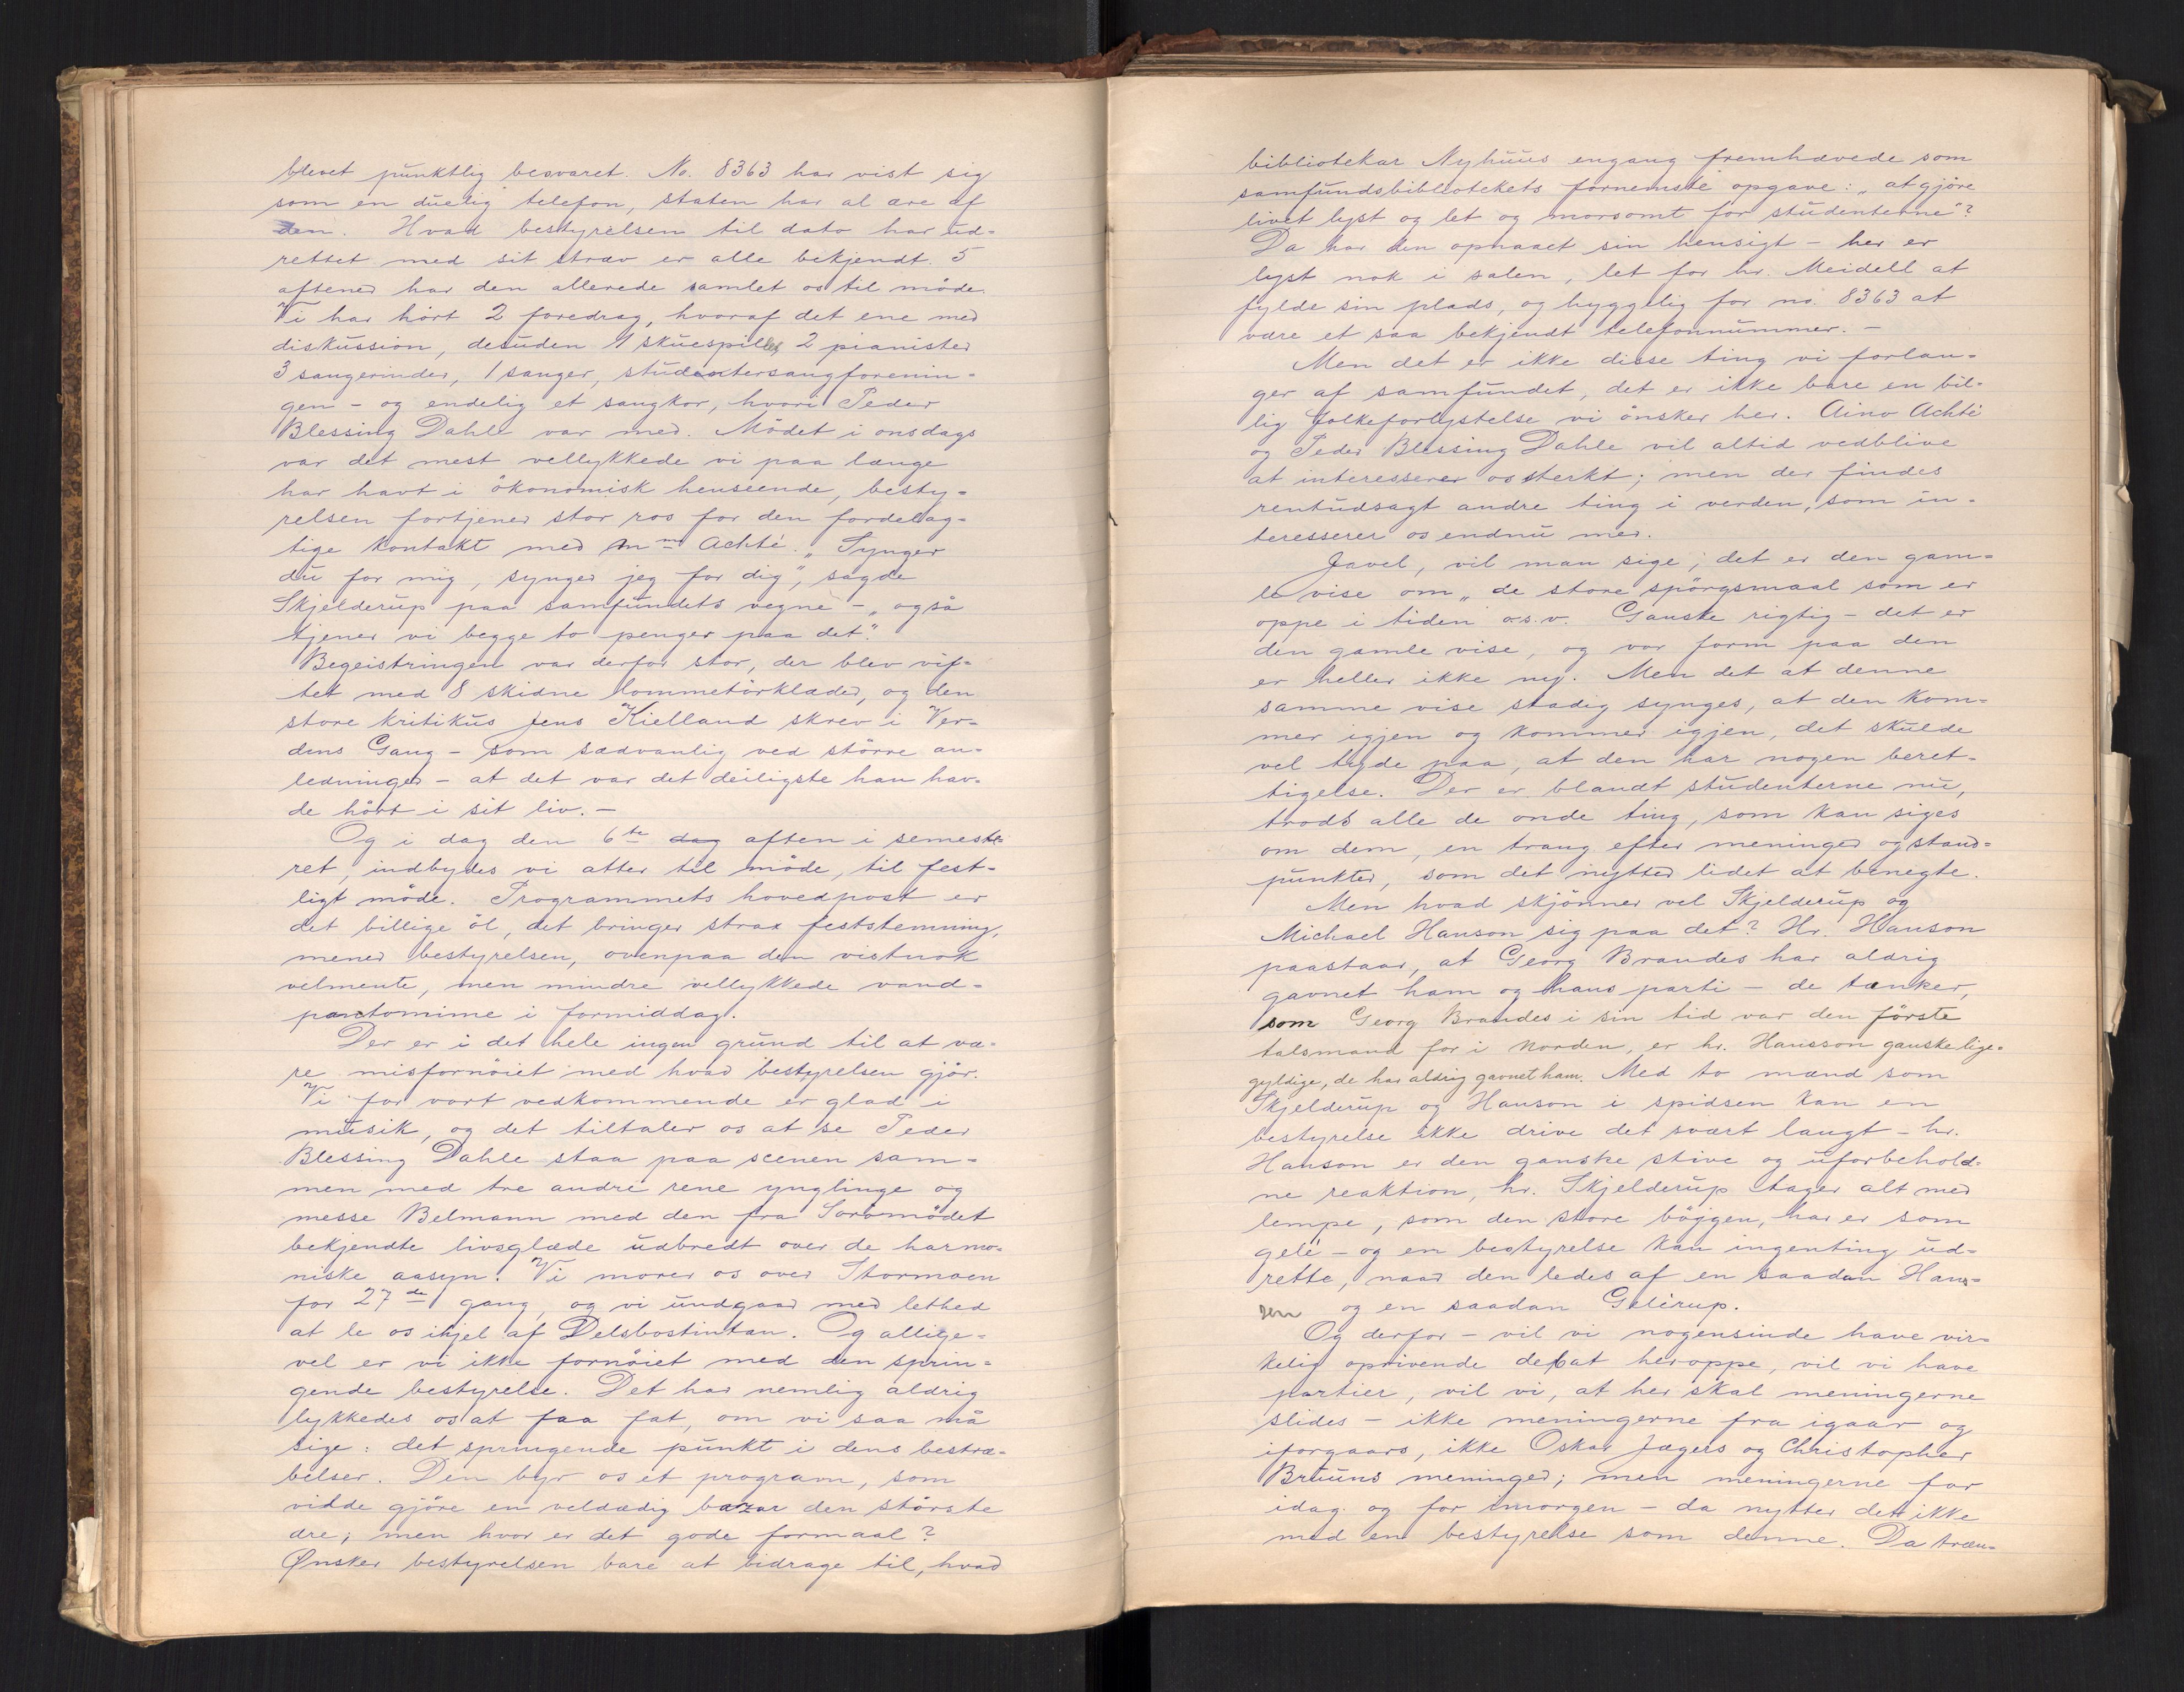 blevet punktlig besvaret. No. 8363 har vist sig
som en duelig telefon, staten har al ære af
den. Hvad bestyrelsen til dato har ud-
rettet med sit stræv er alle bekjendt. 5
aftener har den allerede samlet os til møde.
Vi har hørt 2 foredrag, hvoraf det ene med
diskussion, desuden 1 skuespiller, 2 pianister
3 sangerinder, 1 sanger, studentersangforenin-
gen - og endelig et sangkor, hvori Peder
Blessing Dahle var med. Mødet i onsdags
var det mest vellykkede vi paa længe
har havt i økonomisk henseende, besty-
relsen fortjener stor ros for den fordelag-
tige kontakt med Mme Achté. "Synger
du for mig, synger jeg for dig", sagde
Skjelderup paa samfundets vegne - "også
tjener vi begge to penger paa det."
Begeistringen var derfor stor, der blev vif-
tet med 8 skidne lommetørklæder, og den
store kritikus Jens Kielland skrev i Ver-
dens Gang - som sædvanlig ved større an-
ledninger - at det var det deiligste han hav-
de hørt i sit liv. -
Og i dag den 6te dag aften i semeste-
ret, indbydes vi atter til møde, til fest-
ligt møde. Programmets hovedpost er
det billige øl, det bringer strax feststemning,
mener bestyrelsen, ovenpaa den vistnok
velmente, men mindre vellykkede vand-
pantomime i formiddag.
Der er i det hele ingen grund til at væ-
re misfornøiet med hvad bestyrelsen gjør.
Vi for vort vedkommende er glad i
musik, og det tiltaler os at se Peder
Blessing Dahle staa paa scenen sam-
men med tre andre rene ynglinge og
messe Belmann med den fra Sorømødet
bekjendte livsglæde udbredt over de harmo-
niske aasyn. Vi morer os over Stormoen
for 27de gang, og vi undgaar med lethed
at le os ihjel af Delsbostintan. Og allige-
vel er vi ikke fornøiet med den sprin-
gende bestyrelse. Det har nemlig aldrig
lykkedes os at faa fat, om vi saa må
sige: det springende punkt i dens bestræ-
belser. Den byr os et program, som
vidde gjøre en veldædig bazar den største
ære; men hvor er det gode formaal?
Ønsker bestyrelsen bare at bidrage til, hvad
bibliotekar Nyhuus engang fremhævede som
samfundsbibliotekets fornemste opgave: "at gjøre
livet lyst og let og morsomt for studenterne"?
Da har den opnaaet sin hensigt - her er
lyst nok i salen, let for hr. Meidell at
fylde sin plads, og hyggelig for no. 8363 at
være et saa bekjendt telefonnummer. -
Men det er ikke disse ting vi forlan-
ger af samfundet, det er ikke bare en bil-
lig folkeforlystelse vi ønsker her. Aino Achté
og Peder Blessing Dahle vil altid vedblive
at interesserer os sterkt; men der findes
rentudsagt andre ting i verden, som in-
teresserer os endnu mer.
Javel, vil man sige; det er den gam-
le vise om "de store spørgsmaal som er
oppe i tiden o.s.v. Ganske rigtig - det er
den gamle vise, og vor form paa den
er heller ikke ny. Men det at denne
samme vise stadig synges, at den kom-
mer igjen og kommer igjen, det skulde
vel tyde paa, at den har nogen beret-
tigelse. Der er blandt studenterne nu,
trods alle de onde ting, som kan siges
om dem, en trang efter meninger og stand-
punkter, som det nytter lidet at benegte.
Men hvad skjønner vel Skjelderup og
Michael Hanson sig paa det? Hr. Hanson
paastaar, at Georg Brandes har aldrig
gavnet ham og hans parti - de tanker,
som Georg Brandes i sin tid var den første
talsmand for i Norden, er hr. Hansson ganske lige-
gyldige, de har aldrig gavnet ham. Med to mænd som
Skjelderup og Hanson i spidsen kan en
bestyrelse ikke drive det svært langt - hr.
Hanson er den ganske stive og uforbehold-
ne reaktion, hr. Skjelderup tager alt med
lempe, som den store bøjgen, har er som
gelé - og en bestyrelse kan ingenting ud-
rette, naar den ledes af en saadan Han-
sen og en saadan Gelérup.
Og derfor - vil vi nogensinde have vir-
kelig oprivende debat heroppe, vil vi have
partier, vil vi, at her skal meningerne
slides - ikke meningerne fra igaar og
iforgaars, ikke Oskar Jægers og Christopher
Bruuns meninger; men meningerne for
idag og for imorgen - da nytter det ikke
med en bestyrelse som denne. Da træn-